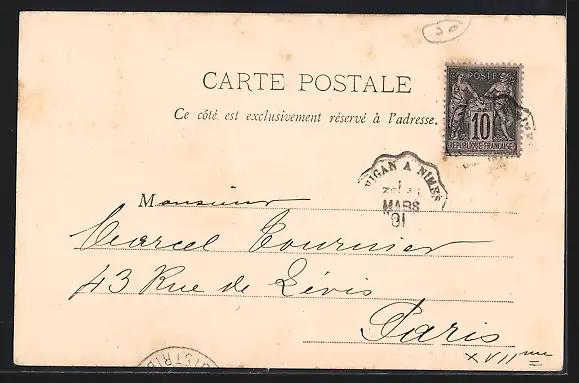 30
CARTE POSTALE
Ce côté est exclusivement réservé à l'adresse.
POSTE
10
REPUBLIQUE FRANÇAISE
VIGAN A NIMES
MARS
01
Monsieur
Marcel Tournier
43 Rue de Lévis
Paris
XVIIme
DISTRIB